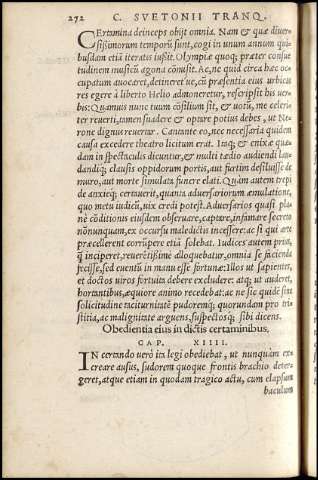 272 C. SVETONII TRANQ.
CErtamina deinceps obijt omnia. Nam & quæ diuer-
sissimorum temporũ sunt, cogi in unum annum qui-
busdam etiã iteratis iussit. Olympiæ quoq; præter consue
tudinem musicũ agona cõmisit. Ac, ne quid circa hæc oc-
cupatum auocaret, detineret ue, cũ præsentia eius urbicas
res egere à liberto Helio admoneretur, rescripsit his uer-
bis: Quamuis nunc tuum cõsilium sit, & uotũ, me celeri-
ter reuerti, tamen suadere & optare potius debes, ut Ne-
rone dignus reuertar. Cantante eo, nec necessaria quidem
causa excedere theatro licitum erat. Itaq; & enixæ quæ
dam in spectaculis dicuntur, & multi tædio audiendi lau-
dandiq; clausis oppidorum portis, aut furtim desiluisse de
muro, aut morte simulata funere elati. Quàm autem trepi
de anxieq; certauerit, quanta aduersariorum æmulatione,
quo metu iudicũ, uix credi potest. Aduersarios quasi pla-
nè cõditionis eiusdem obseruare, captare, infamare secreto
nõnunquam, ex occursu maledictis incessere: ac si qui arte
præcellerent corrũpere etiã solebat. Iudices autem prius,
q̃ inciperet, reuerẽtißimè alloquebatur, omnia se facienda
fecisse, sed euentũ in manu esse fortunæ: Illos ut sapientes,
et doctos uiros fortuita debere excludere: atq; ut auderet,
hortantibus, æquiore animo recedebat: ac ne sic quidẽ sine
solicitudine taciturnitatẽ pudoremq; quorundam pro tri
stitia, ac malignitate arguens, suspectosq; sibi dicens.
Obedientia eius in dictis certaminibus.
CAP. XIIII.
IN certando verò ita legi obediebat, ut nunquàm ex-
creare ausus, sudorem quoque frontis brachio deter-
geret, atque etiam in quodam tragico actu, cum elapsum
baculum